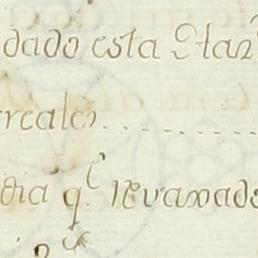 dado esta Han
reales
dia q.e revaxado